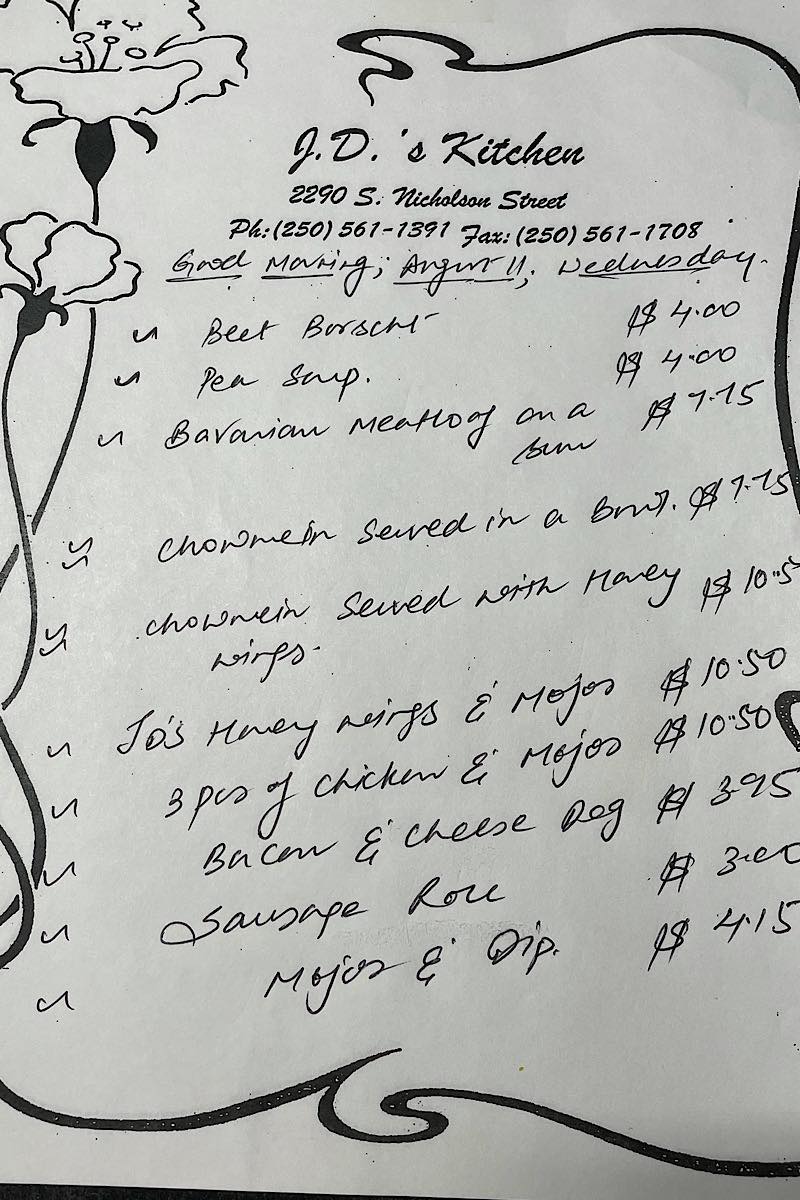 J.D.'s Kitchen
2290 S. Nicholson Street
Ph:(250) 561-1391 Fax:(250) 561-1708
Good Morning; August 11, Wednesday.
Beet Borscht $4.00
Pea Soup. $4.00
Bavarian Meatloaf on a $7.75
bun
Chowmein Served in a Bowl. $7.75
Chowmein Served with Honey $10.5
wings.
Jo's Honey wings & Mojos $10.50
3 pcs of Chicken & Mojos $10.50
Bacon & Cheese Dog $3.95
Sausage Roll $3.00
Mojos & Dip. $4.15